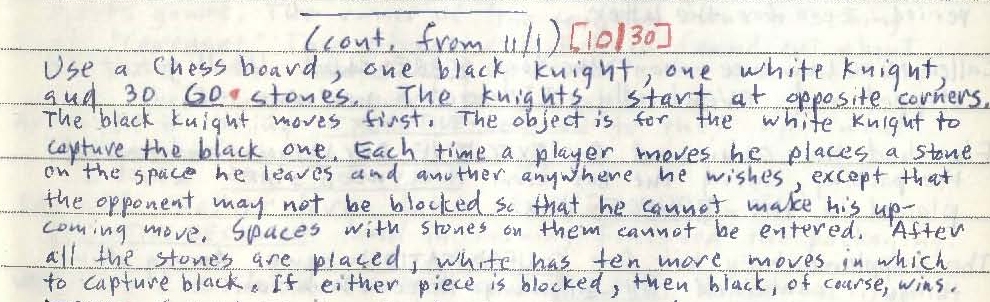 (cont. from 11/1) [10/30]
Use a Chess board, one black knight, one white knight,
and 30 GO stones. The knights start at opposite corners.
The black knight moves first. The object is for the white knight to
capture the black one. Each time a player moves he places a stone
on the space he leaves and another anywhere he wishes, except that
the opponent may not be blocked so that he cannot make his up-
coming move. Spaces with stones on them cannot be entered. After
all the stones are placed, white has ten more moves in which
to capture black. If either piece is blocked, then black, of course, wins.